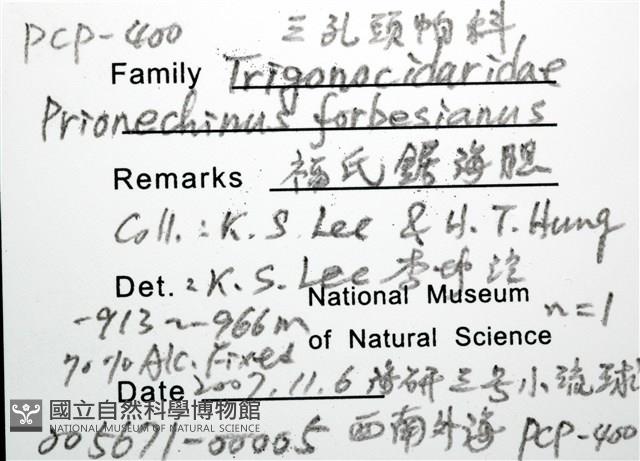 PCP-400 三孔頭帕科
Family Trigonocidaridae
Prionechinus forbesianus
Remarks 福氏鋸海胆
Coll.: K. S. Lee & H. T. Hung
Det.: K. S. Lee 李坤瑄
National Museum
-913~-966m n=1
of Natural Science
70% Alc. Fixed
Date 2007.11.6 海研三号小琉球
國立自然科學博物館
NATIONAL MUSEUM OF NATURAL SCIENCE
005671-00005 西南外海 PCP-400